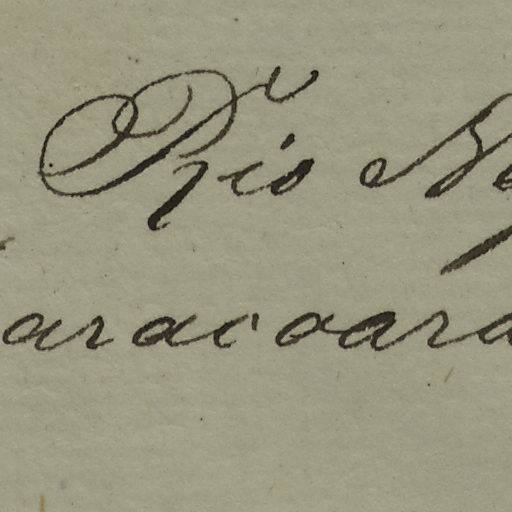 Rio Ne
aracoara